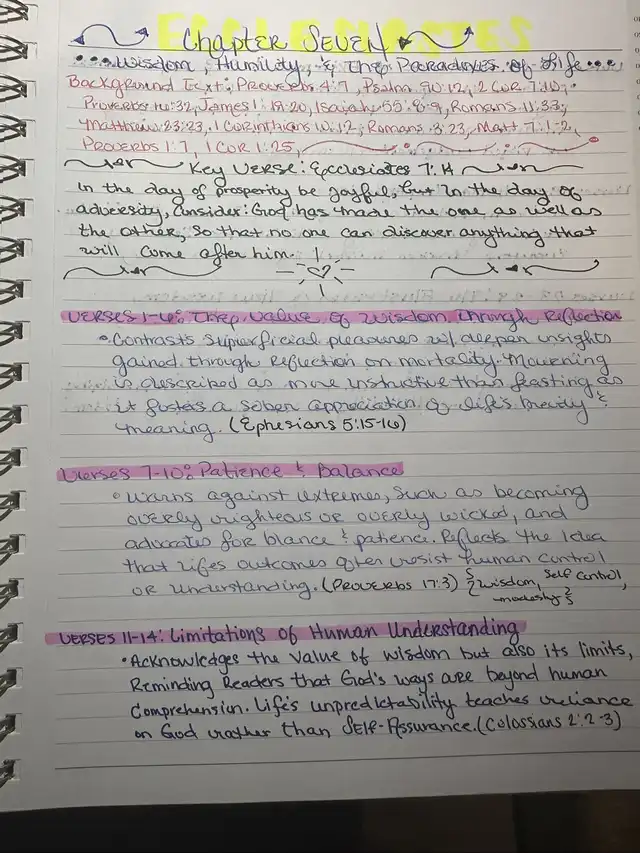 Chapter Seven
Wisdom, Humility, & The Paradoxes of Life
Background Text: Proverbs 4:7, Psalm 90:12, 2 Cor 7:10,
Proverbs 16:32, James 1:19-20, Isaiah 55:8-9, Romans 11:33,
Matthew 23:23, 1 Corinthians 10:12, Romans 3:23, Matt 7:1-2,
Proverbs 1:7, 1 Cor 1:25,
Key Verse: Ecclesiates 7:14
In the day of prosperity be joyful, but in the day of
adversity, consider: God has made the one as well as
the other, so that no one can discover anything that
will come after him.
Verses 1-6: The value of wisdom through Reflection
Contrasts superficial pleasures w/ deeper insights
gained through reflection on mortality. Mourning
is described as more instructive than feasting as
it fosters a sober appreciation of life's brevity &
meaning. (Ephesians 5:15-16)
Verses 7-10: Patience & Balance
Warns against extremes, such as becoming
overly righteous or overly wicked, and
advocates for blance & patience. Reflects the idea
that lifes outcomes often resist human control
or understanding. (Proverbs 17:3) { wisdom, self control,
modesty }
Verses 11-14: Limitations of Human Understanding
Acknowledges the value of wisdom but also its limits,
Reminding Readers that God's ways are beyond human
comprehension. Life's unpredictability teaches reliance
on God rather than Self-Assurance. (Colossians 2:2-3)